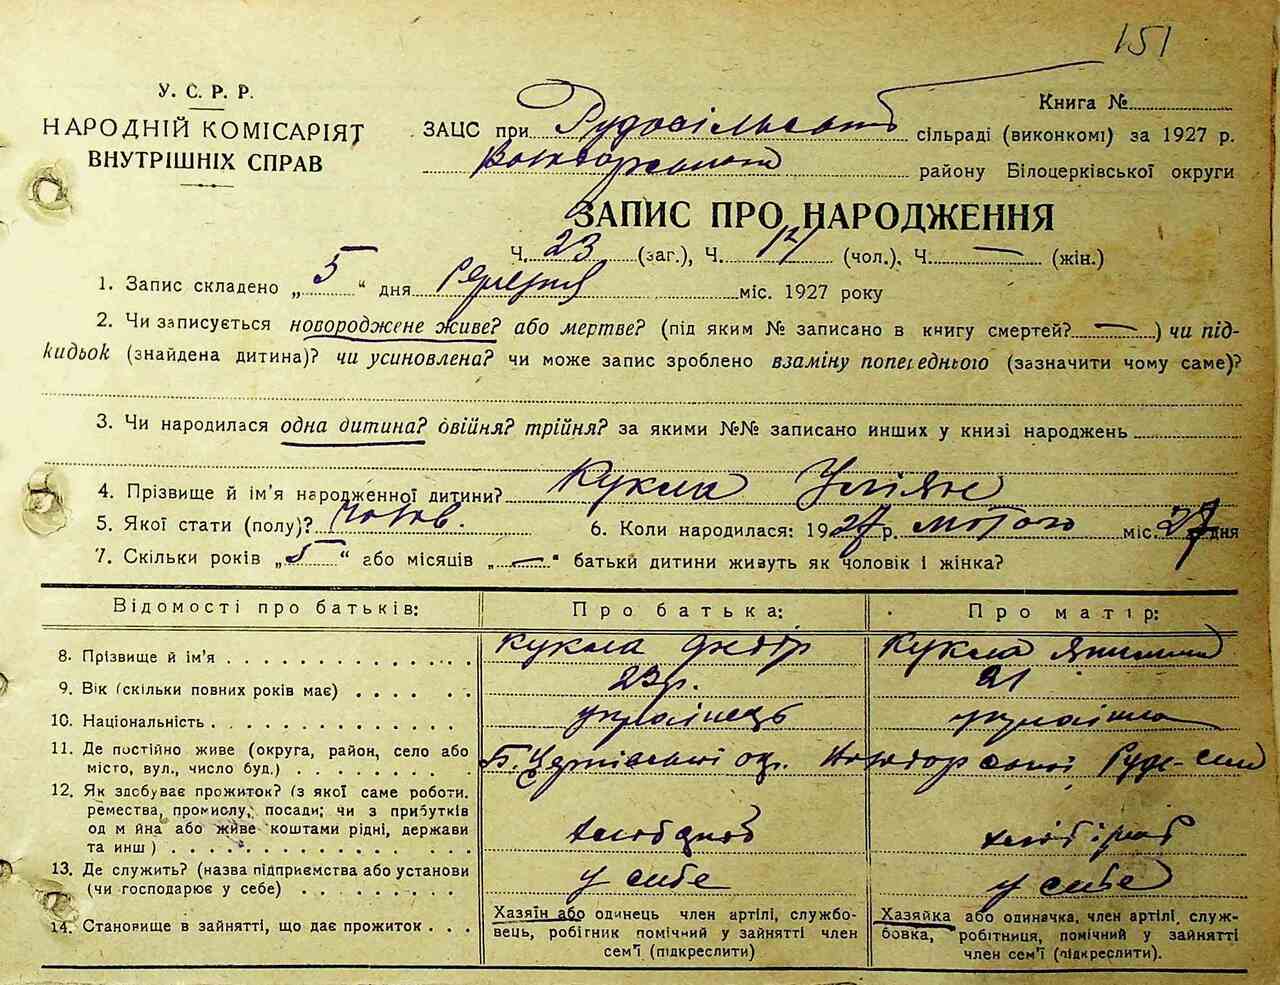 151
У. С. Р. Р.
НАРОДНІЙ КОМІСАРІЯТ
ВНУТРІШНІХ СПРАВ
Книга №
ЗАЦС при Рудосільської сільраді (виконкомі) за 1927 р.
району Білоцерківської округи
ЗАПИС ПРО НАРОДЖЕННЯ
Ч. 23 (заг.), Ч. 12 (чол.), Ч. — (жін.)
1. Запис складено „ 5 “ дня березня міс. 1927 року
2. Чи записується новороджене живе? або мертве? (під яким № записано в книгу смертей? — ) чи під-
кидьок (знайдена дитина)? чи усиновлена? чи може запис зроблено взаміну попереднього (зазначити чому саме)?
3. Чи народилася одна дитина? двійня? трійня? за якими №№ записано инших у книзі народжень
4. Прізвище й ім'я народженної дитини? Кукла Уліян
5. Якої стати (полу)? чолов. 6. Коли народилася: 1927 р. лютого міс. 27 дня
7. Скільки років „ 5 “ або місяців „ — “ батьки дитини живуть як чоловік і жінка?
Відомості про батьків: Про батька: Про матір:
8. Прізвище й ім'я Кукла Кукла
9. Вік (скільки повних років має) 23 р. 21
10. Національність українець українка
11. Де постійно живе (округа, район, село або
місто, вул., число буд.) Б. Церківської окр. Руде-село
12. Як здобуває прожиток? (з якої саме роботи,
ремества, промислу, посади; чи з прибутків
од майна або живе коштами рідні, держави
та инш.) хлібороб хлібороб
13. Де служить? (назва підприємства або установи
(чи господарює у себе) у себе у себе
14. Становище в зайнятті, що дає прожиток
Хазяїн або одинець член артілі, службо-
вець, робігник помічний у зайнятті член
сем'ї (підкреслити)
Хазяйка або одиначка, член артілі, служ-
бовка, робітниця, помічний у зайнятті
член сем'ї (підкреслити).